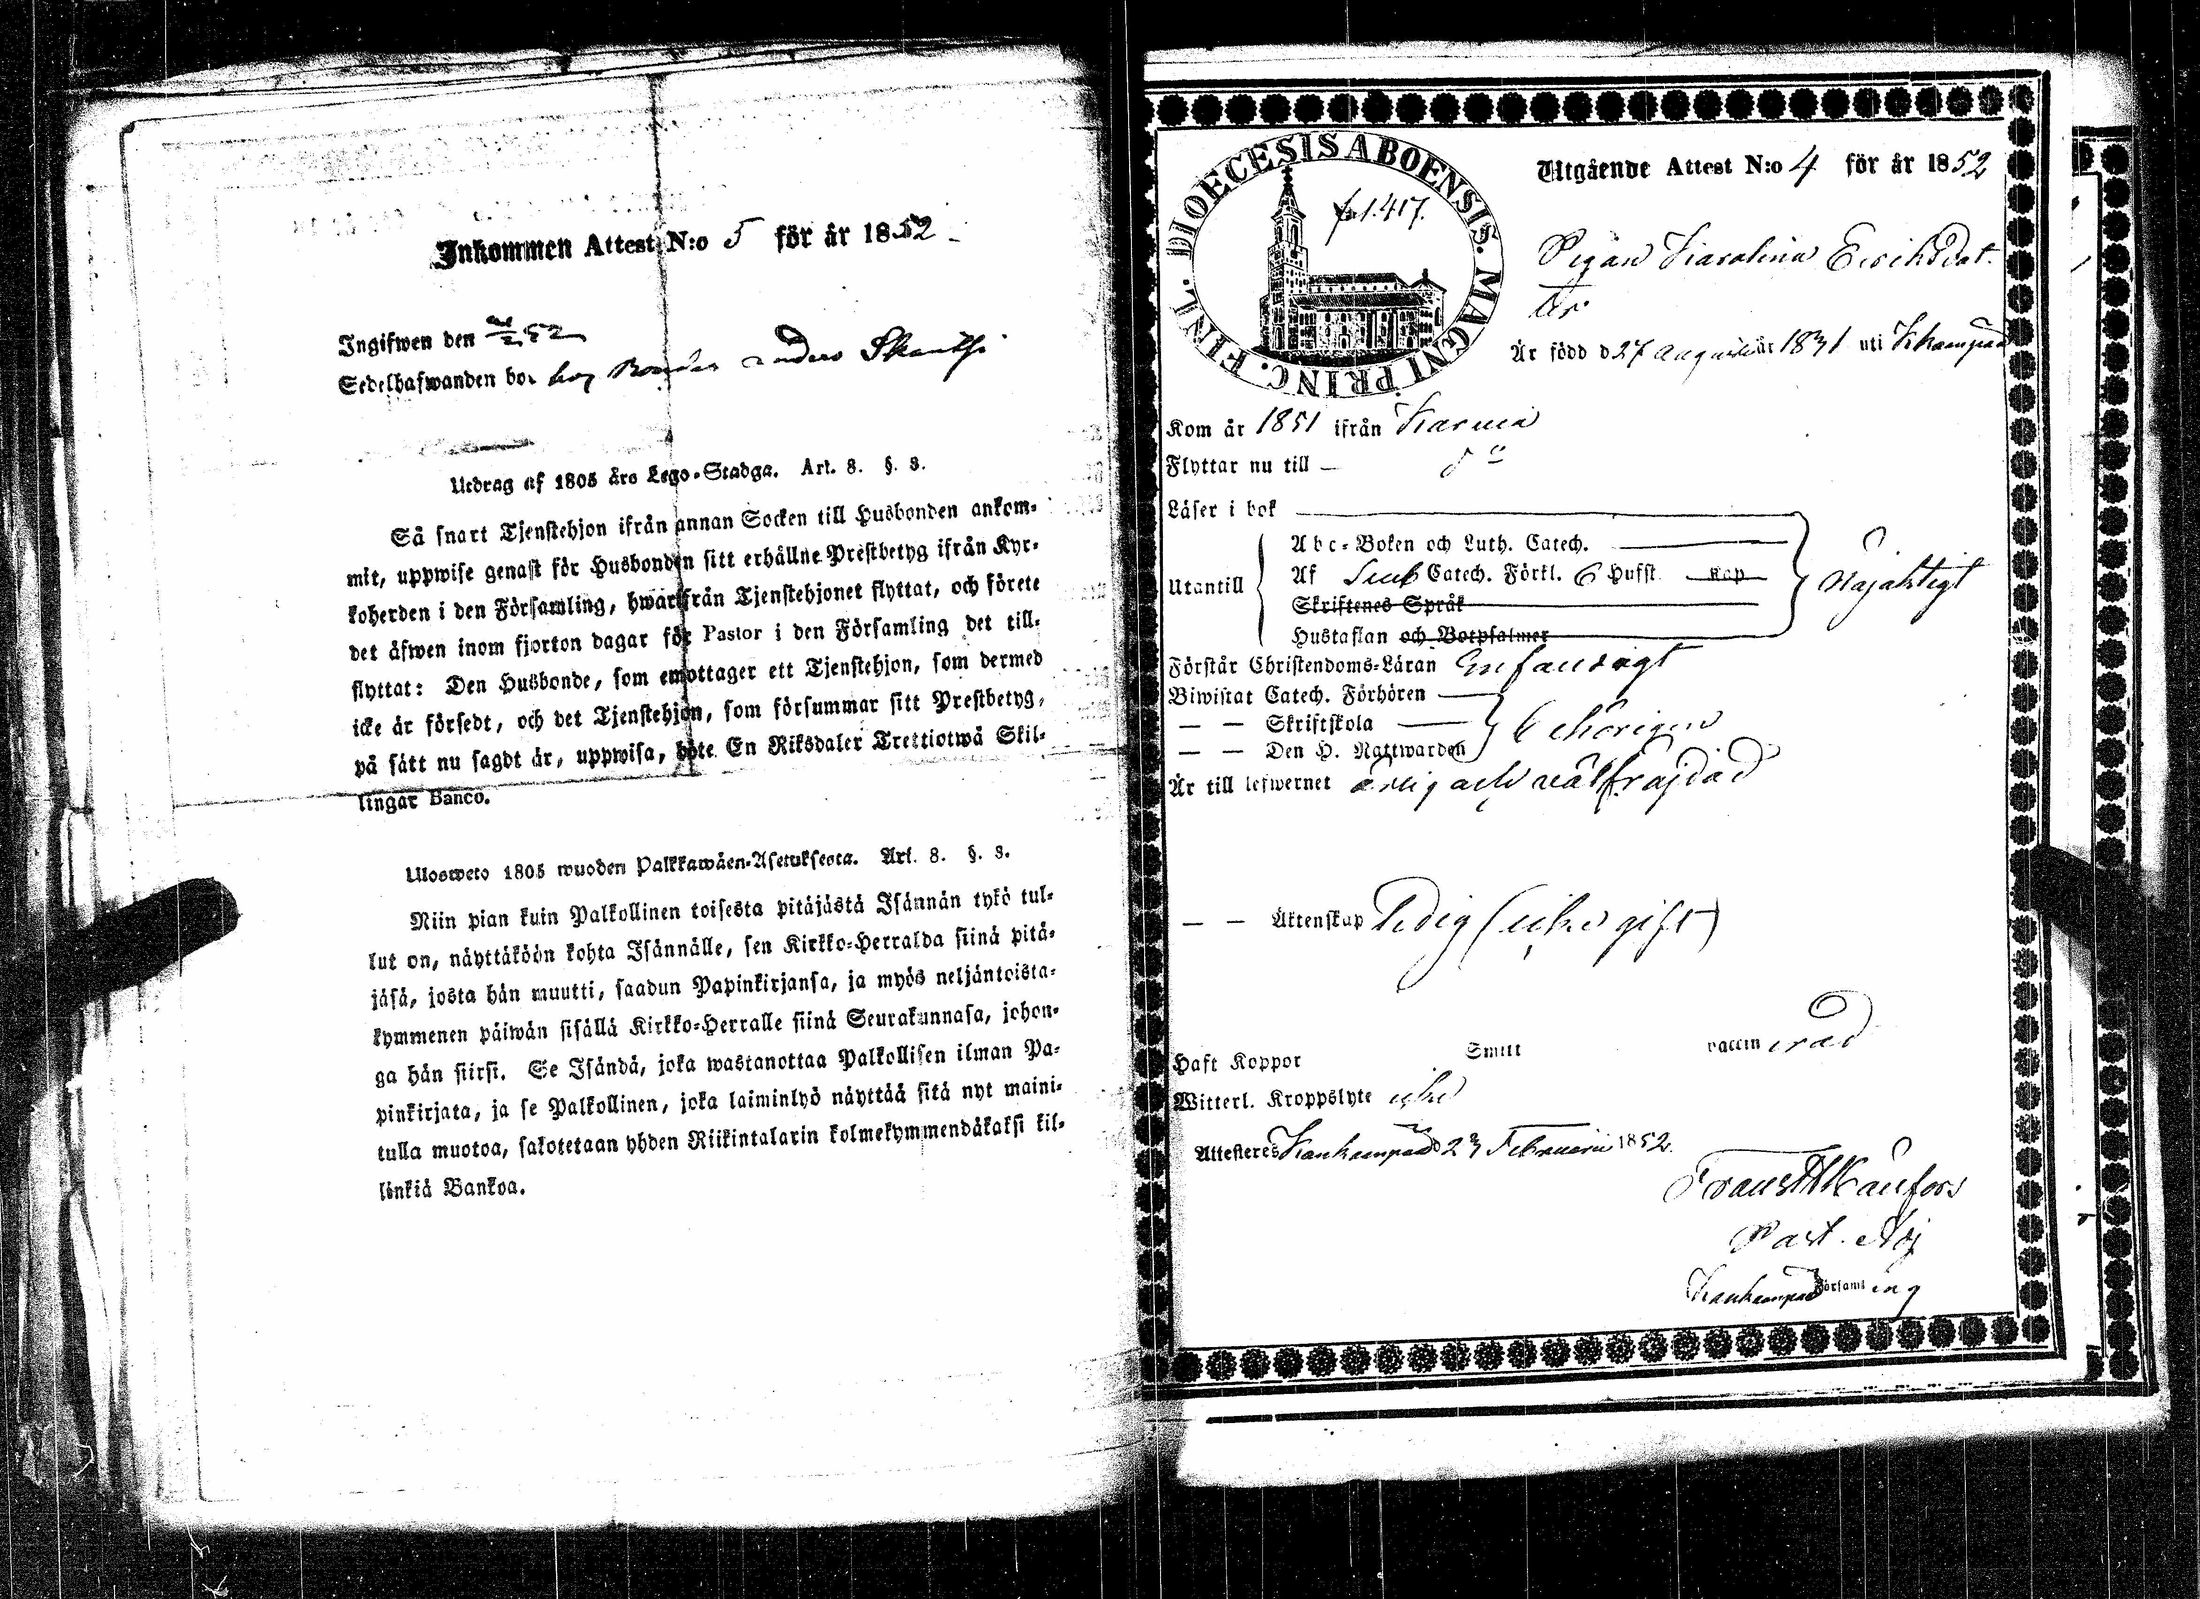 Inkommen Attest N:o 5 för år 1852
Ingifwen den 52
Sedelhafwanden bor hos Bonden Anders
Utdrag af 1805 års Lego-Stadga. Art. 8. §. 3.
Så snart Tjenstehjon ifrån annan Socken till Husbonden ankom-
mit, uppwise genast för Husbonden sitt erhållne Prestbetyg ifrån Kyr-
koherden i den Församling, hwarifrån Tjenstehjonet flyttat, och förete
det äfwen inom fjorton dagar för Pastor i den Församling det till-
flyttat: Den Husbonde, som emottager ett Tjenstehjon, som dermed
icke är försedt, och det Tjenstehjon, som försummar sitt Prestbetyg,
på sätt nu sagdt är, uppwisa, böte En Riksdaler Trettiotwå Skil-
lingar Banco.
Ulosweto 1805 wuoden Palkkawäen-Asetuksesta. Art. 8. §. 3.
Niin pian kuin Palkollinen toisesta pitäjästä Isännän tykö tul-
lut on, näyttäköön kohta Isännälle, sen Kirkko-Herralda siinä pitä-
jäsä, josta hän muutti, saadun Papinkirjansa, ja myös neljäntoista-
kymmenen päiwän sisällä Kirkko-Herralle siinä Seurakunnasa, johon-
ga hän siirsi. Se Isändä, joka wastanottaa Palkollisen ilman Pa-
pinkirjata, ja se Palkollinen, joka laiminlyö näyttää sitä nyt maini-
tulla muotoa, sakotetaan yhden Riikintalarin kolmekymmendäkaksi kil-
linkiä Bankoa.
DIOECESIS ABOENSIS. MAGNI PRINC. FINL.
fol. 417.
Utgående Attest N:o 4 för år 1852
Pigan Karolina Eriksdot-
ter
Är född d 27 Augusti år 1831 uti Khaanpää
Kom år 1851 ifrån Karvia
Flyttar nu till — do
Läser i bok
Abc-Boken och Luth. Catech.
Utantill Af Sveb Catech. Förkl. 6 Hufst. Kap
Skriftenes Språk
Hustaflan och Botpsalmer
Nöjaktigt
Förstår Christendoms-Läran Enfaldigt
Biwistat Catech. Förhören
— — Skriftskola
— — Den H. Nattwarden
behörigen
Är till lefwernet ärlig och välfräjdad
— — Äktenskap Ledig (icke gift)
Haft Koppor Smitt vaccinerad
Witterl. Kroppslyte icke
Attesteres Kankaanpää d 23 Februari 1852.
Frans
Past. Adj
Kankaanpää Församling